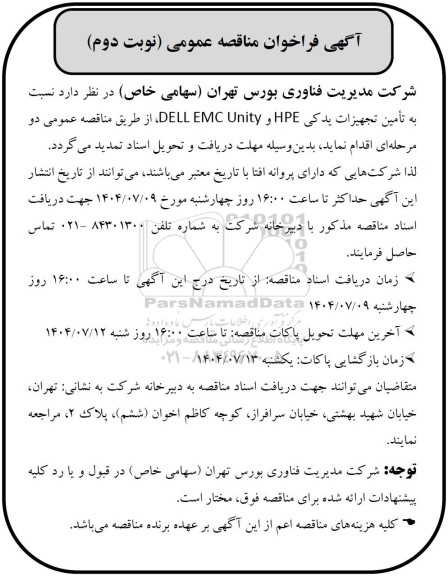 آگهی فراخوان مناقصه عمومی (نوبت دوم)
شرکت مدیریت فناوری بورس تهران (سهامی خاص) در نظر دارد نسبت
به تأمین تجهیزات یدکی HPE و DELL EMC Unity، از طریق مناقصه عمومی دو
مرحله‌ای اقدام نماید، بدین‌وسیله مهلت دریافت و تحویل اسناد تمدید می‌گردد.
لذا شرکت‌هایی که دارای پروانه افتا با تاریخ معتبر می‌باشند، می‌توانند از تاریخ انتشار
این آگهی حداکثر تا ساعت ۱۶:۰۰ روز چهارشنبه مورخ ۱۴۰۴/۰۷/۰۹ جهت دریافت
اسناد مناقصه مذکور با دبیرخانه شرکت به شماره تلفن ۸۴۳۰۱۳۰۰ -۰۲۱ تماس
حاصل فرمایند.
➢ زمان دریافت اسناد مناقصه: از تاریخ درج این آگهی تا ساعت ۱۶:۰۰ روز
چهارشنبه ۱۴۰۴/۰۷/۰۹
ParsNamadData
➢ آخرین مهلت تحویل پاکات مناقصه: تا ساعت ۱۶:۰۰ روز شنبه ۱۴۰۴/۰۷/۱۲
پایگاه اطلاع رسانی مناقصه و مزایده
➢ زمان بازگشایی پاکات: یکشنبه ۱۴۰۴/۰۷/۱۳
متقاضیان می‌توانند جهت دریافت اسناد مناقصه به دبیرخانه شرکت به نشانی: تهران،
خیابان شهید بهشتی، خیابان سرافراز، کوچه کاظم اخوان (ششم)، پلاک ۲، مراجعه
نمایند.
توجه: شرکت مدیریت فناوری بورس تهران (سهامی خاص) در قبول و یا رد کلیه
پیشنهادات ارائه شده برای مناقصه فوق، مختار است.
☚ کلیه هزینه‌های مناقصه اعم از این آگهی بر عهده برنده مناقصه می‌باشد.